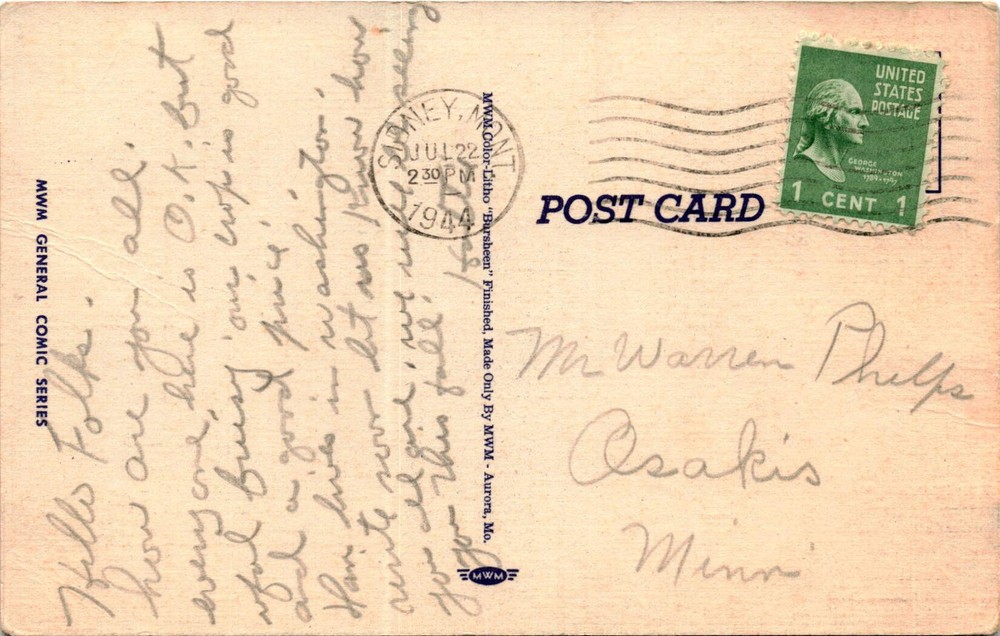 Hello Folks.
how are you all.
everyone here is O.K. but
awful busy our crop is good
and a good price.
Han lives in washington.
write now let us know how
you all are, we will be seeing
you this fall.
MWM GENERAL COMIC SERIES
SIDNEY, MONT
JUL 22
2 30 PM
1944
MWM Color-Litho "Barsheen" Finished, Made Only By MWM - Aurora, Mo.
MWM
POST CARD
UNITED
STATES
POSTAGE
GEORGE
WASHINGTON
1789-1797
1 CENT 1
Mr Warren Phelps
Osakis
Minn